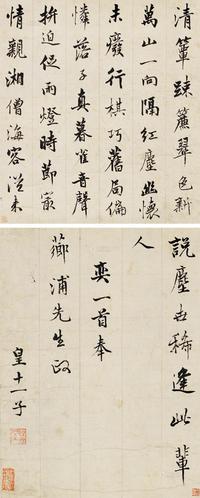 清簟疎簾翠色新
萬山一向隔紅塵幽懷
未廢行棋巧舊局偏
憐落子真暮雀音聲
拚迫促雨燈時節最
情親湘僧海客從來
說塵世稀逢此輩
人
奕一首奉
薌浦先生政
皇十一子